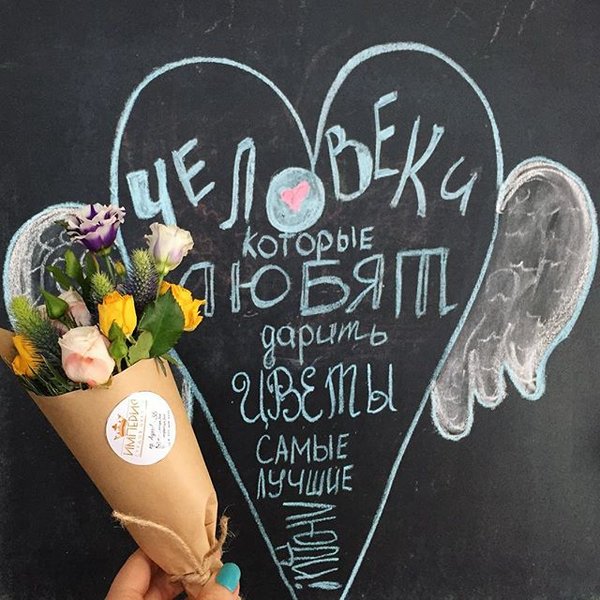 ЧЕЛОВЕКИ
которые
ЛЮБЯТ
дарить
ЦВЕТЫ
САМЫЕ
ЛУЧШИЕ
ЛЮДИ!
ИМПЕРИЯ